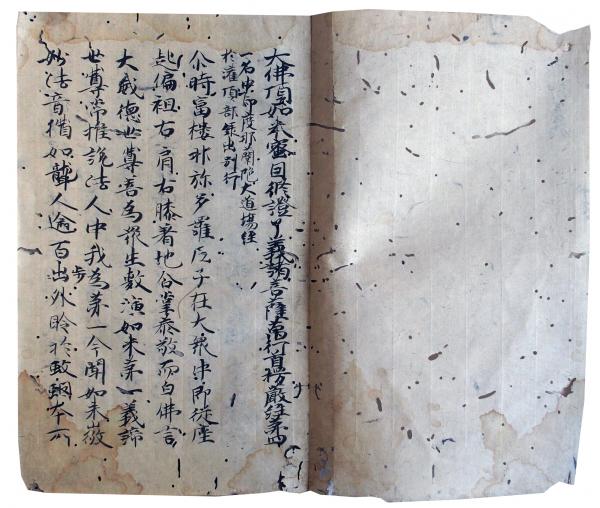 大佛頂如來密因修證了義諸菩薩萬行首楞嚴經第四
一名中印度那蘭陀大道場經
於灌頂部錄出別行
尒時富楼那弥多羅尼子在大衆中即從座
起偏袒右肩右膝着地合掌恭敬而白佛言
大威德世尊善為衆生敷演如来第一義諦
世尊常推說法人中我為第一今聞如来微
妙法音猶如聾人逾百步出外聆於蚊蚋本所